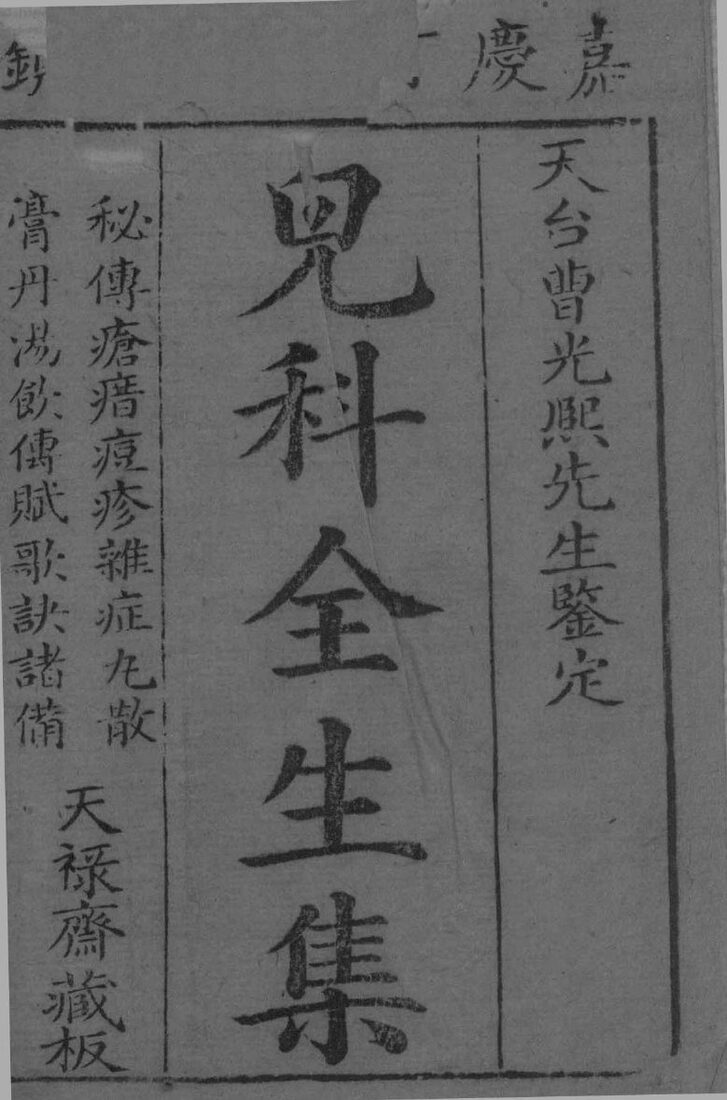 嘉慶
天台曹光熙先生鑒定
兒科全生集
秘傳瘡瘄痘疹雜症丸散
膏丹湯飲傳賦歌訣諸備
天祿齋藏板